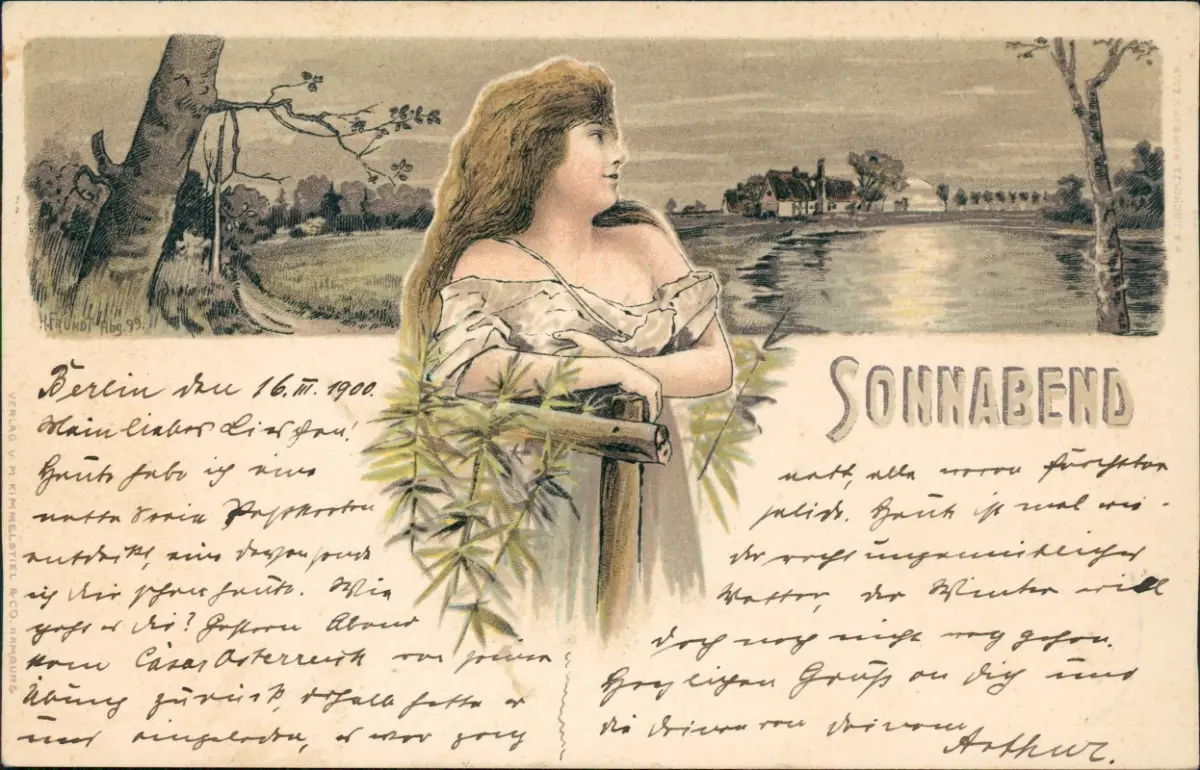 H. FRÜNDT Abg. 99.
SONNABEND
VERLAG V. M. KIMMELSTIEL & CO. HAMBURG
Berlin den 16. III. 1900.
Mein liebes Lieschen!
Heute habe ich eine
nette Serie Postkarten
entdeckt, eine davon sende
ich dir schon heute. Wie
geht es dir? Gestern Abend
kam Cäsar Österreich von seiner
Übung zurück, deshalb hatte er
uns eingeladen, es war ganz
nett, alle waren furchtbar
solide. Heute ist mal wie-
der recht ungemütliches
Wetter, der Winter will
doch noch nicht weg gehen.
Herzlichen Gruß an Dich und
die deinen von deinem
Arthur.